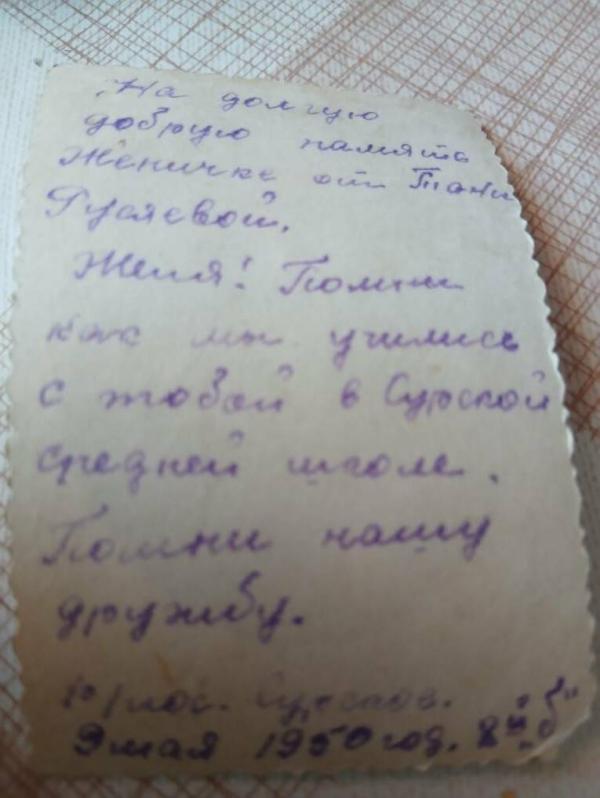 На долгую
добрую память
Женичке от Тани
Гусяевой.
Женя! Помни
как мы учились
с тобой в Сурской
средней школе.
Помни нашу
дружбу.
р/пос. Сурское.
9 мая 1950 год. 8й "б"